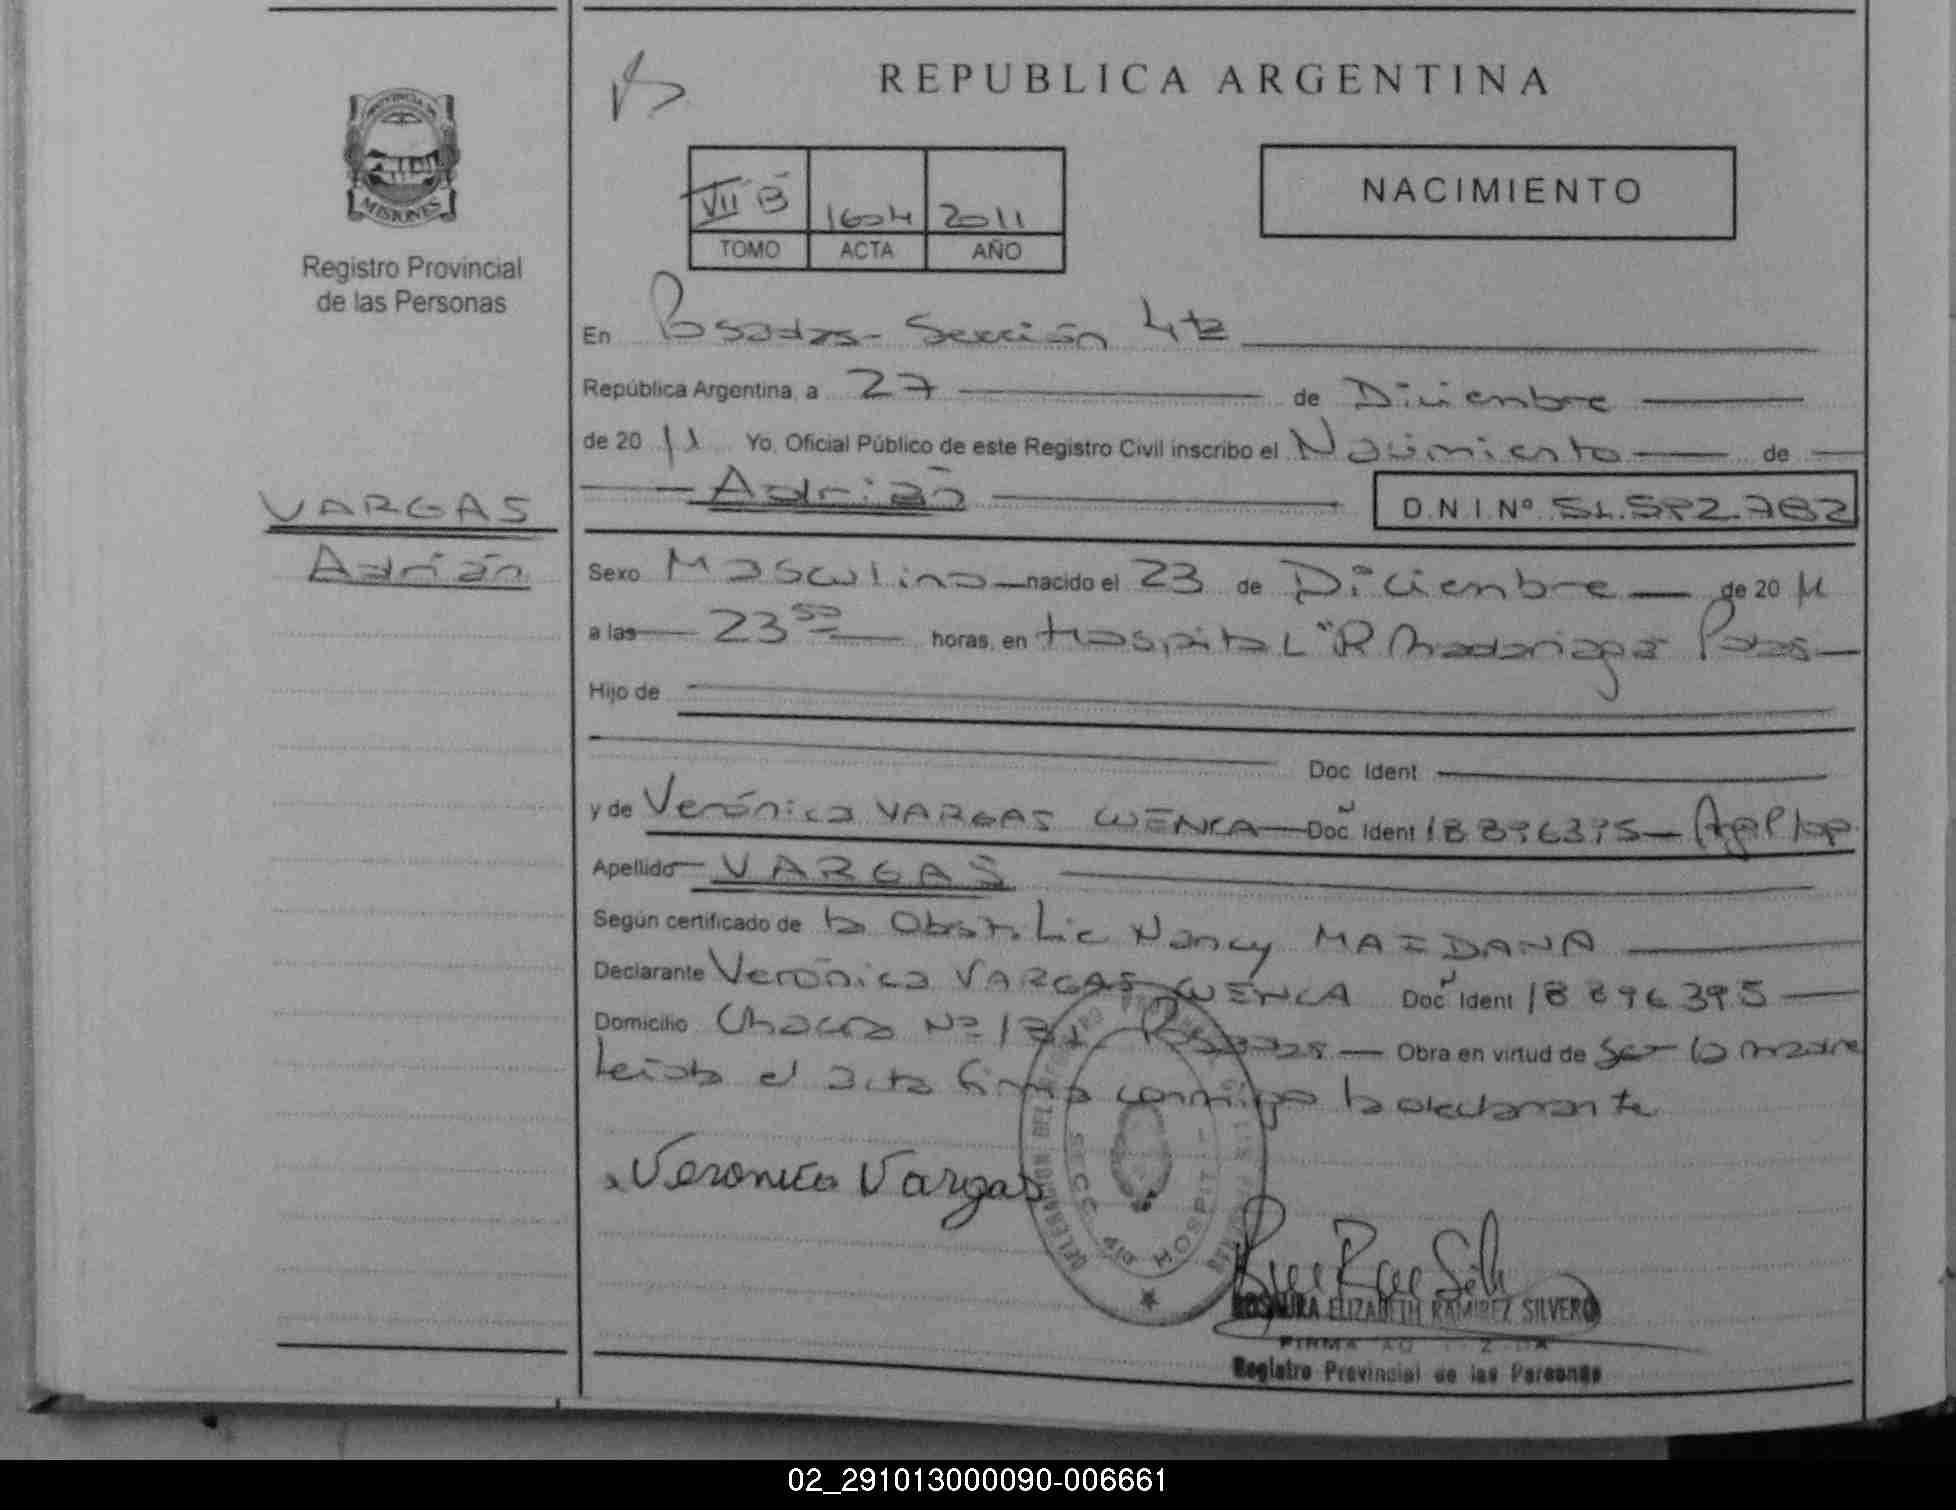 REPUBLICA ARGENTINA
PROVINCIA DE
MISIONES
Registro Provincial
de las Personas
VII B 1604 2011
TOMO ACTA AÑO
NACIMIENTO
En Posadas - Sección 4ta
República Argentina, a 27 de Diciembre
de 20 11 Yo, Oficial Público de este Registro Civil inscribo el Nacimiento de
Adrián D.N.I. Nº
VARGAS
Adrián
Sexo Masculino nacido el 23 de Diciembre de 20 11
a las 23 50 horas, en Hospital "R Madariaga" Pdas
Hijo de
Doc. Ident.
y de Verónica VARGAS CUENCA Doc. Ident. 18896395
Apellido VARGAS
Según certificado de la Obst. Lic Nancy MAIDANA
Declarante Verónica VARGAS CUENCA Doc. Ident. 18896395
Domicilio Chacra Nº 131 Posadas Obra en virtud de Ser la madre
Leída el acta firma conmigo la declarante
Veronica Vargas
SECC
HOSPIT
ELIZABETH RAMIREZ SILVERO
Registro Provincial de las Personas
02_291013000090-006661